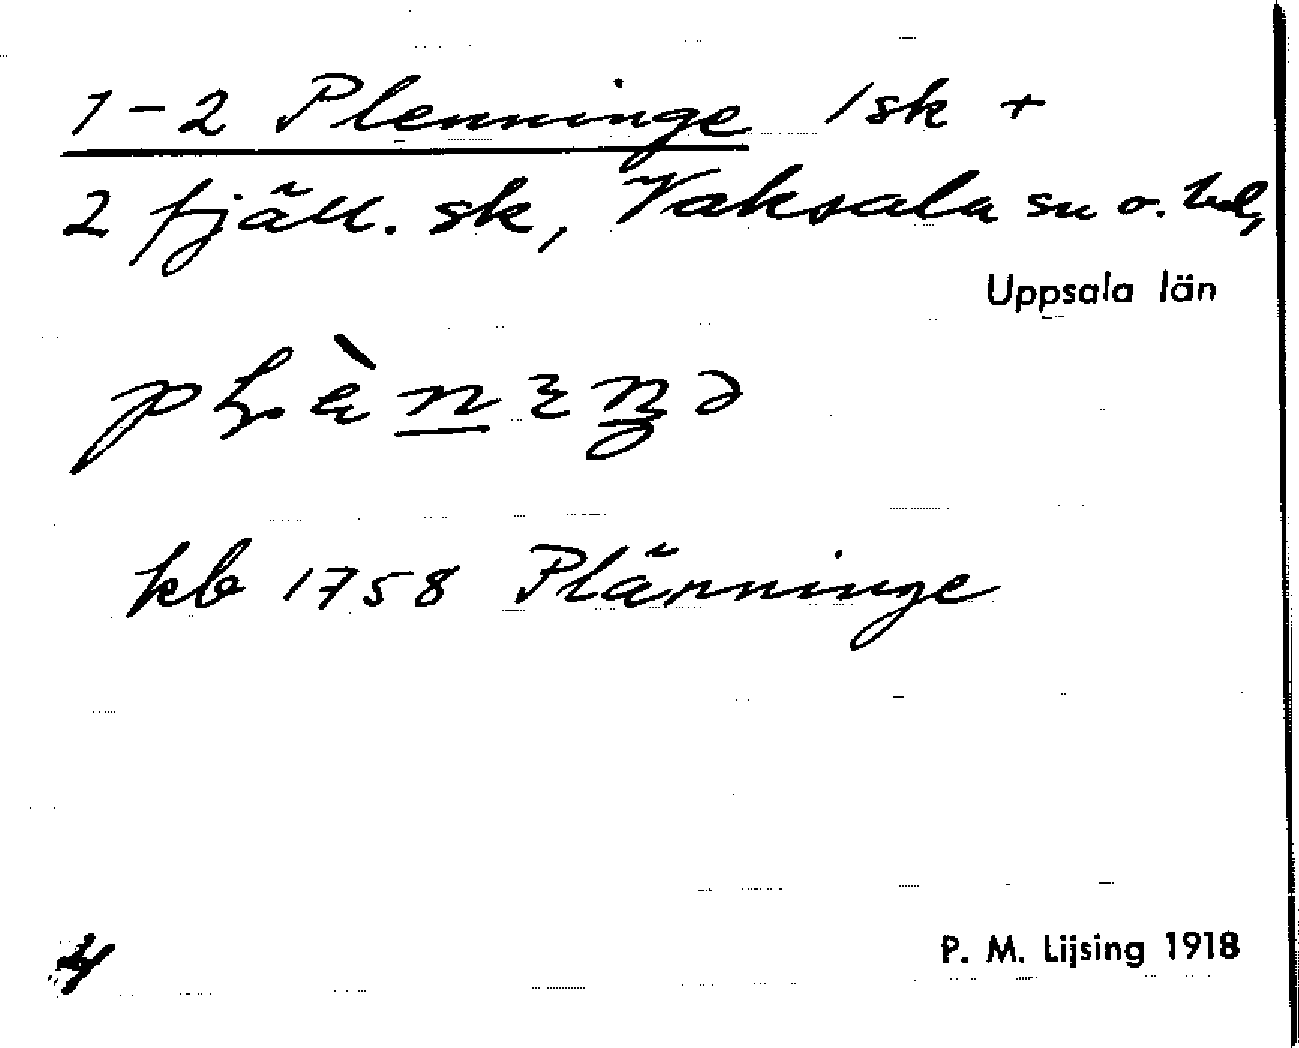 1-2 Plenninge 1sk +
2 fjäll. sk, Vaksala sn o. hd,
Uppsala län
kb 1758 Plänninge
P. M. Lijsing 1918